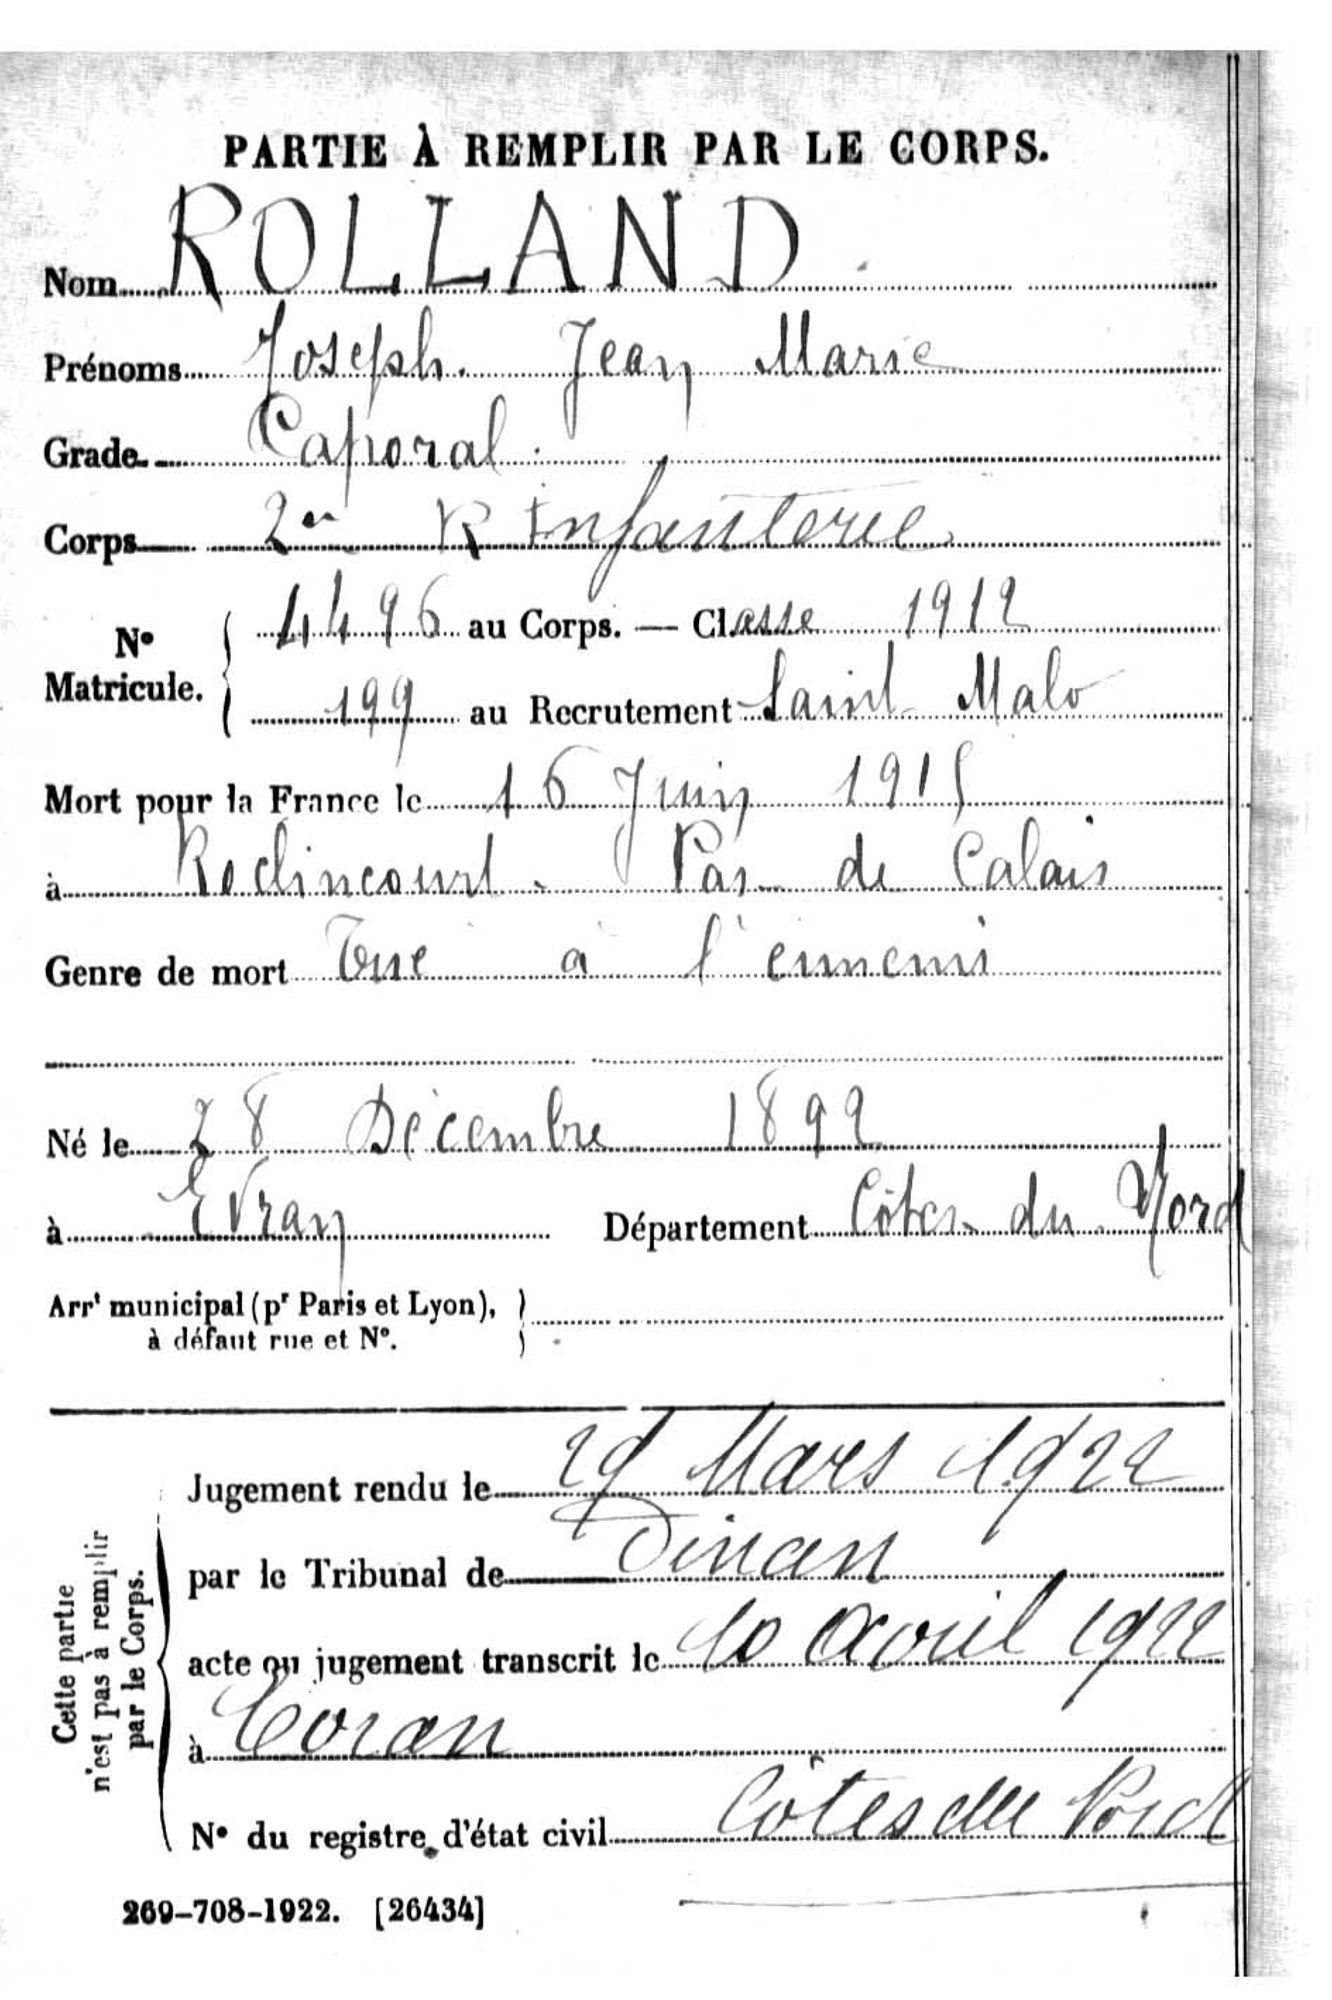 PARTIE À REMPLIR PAR LE CORPS.
Nom ROLLAND
Prénoms Joseph. Jean Marie
Grade Caporal
Corps 2e R Infanterie
No Matricule. { 4496 au Corps. — Classe 1912
199 au Recrutement Saint Malo
Mort pour la France le 16 Juin 1915
à Roclincourt. Pas de Calais
Genre de mort Tué à l'ennemi
Né le 28 Décembre 1892
à Evran Département Côtes du Nord
Arrt municipal (pr Paris et Lyon), }
à défaut rue et No.
Cette partie n'est pas à remplir par le Corps.
Jugement rendu le 29 Mars 1922
par le Tribunal de Dinan
acte ou jugement transcrit le 10 avril 1922
à Evran
No du registre d'état civil Côtes du Nord
269-708-1922. [26434]